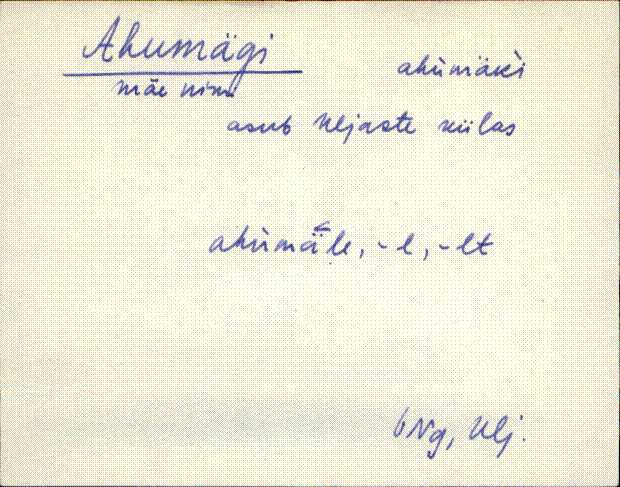 Ahumägi
ahùmäk̀i
mäe nimi
asub Uljaste külas
ahùmäle, -l, -lt
VNg, Ulj.